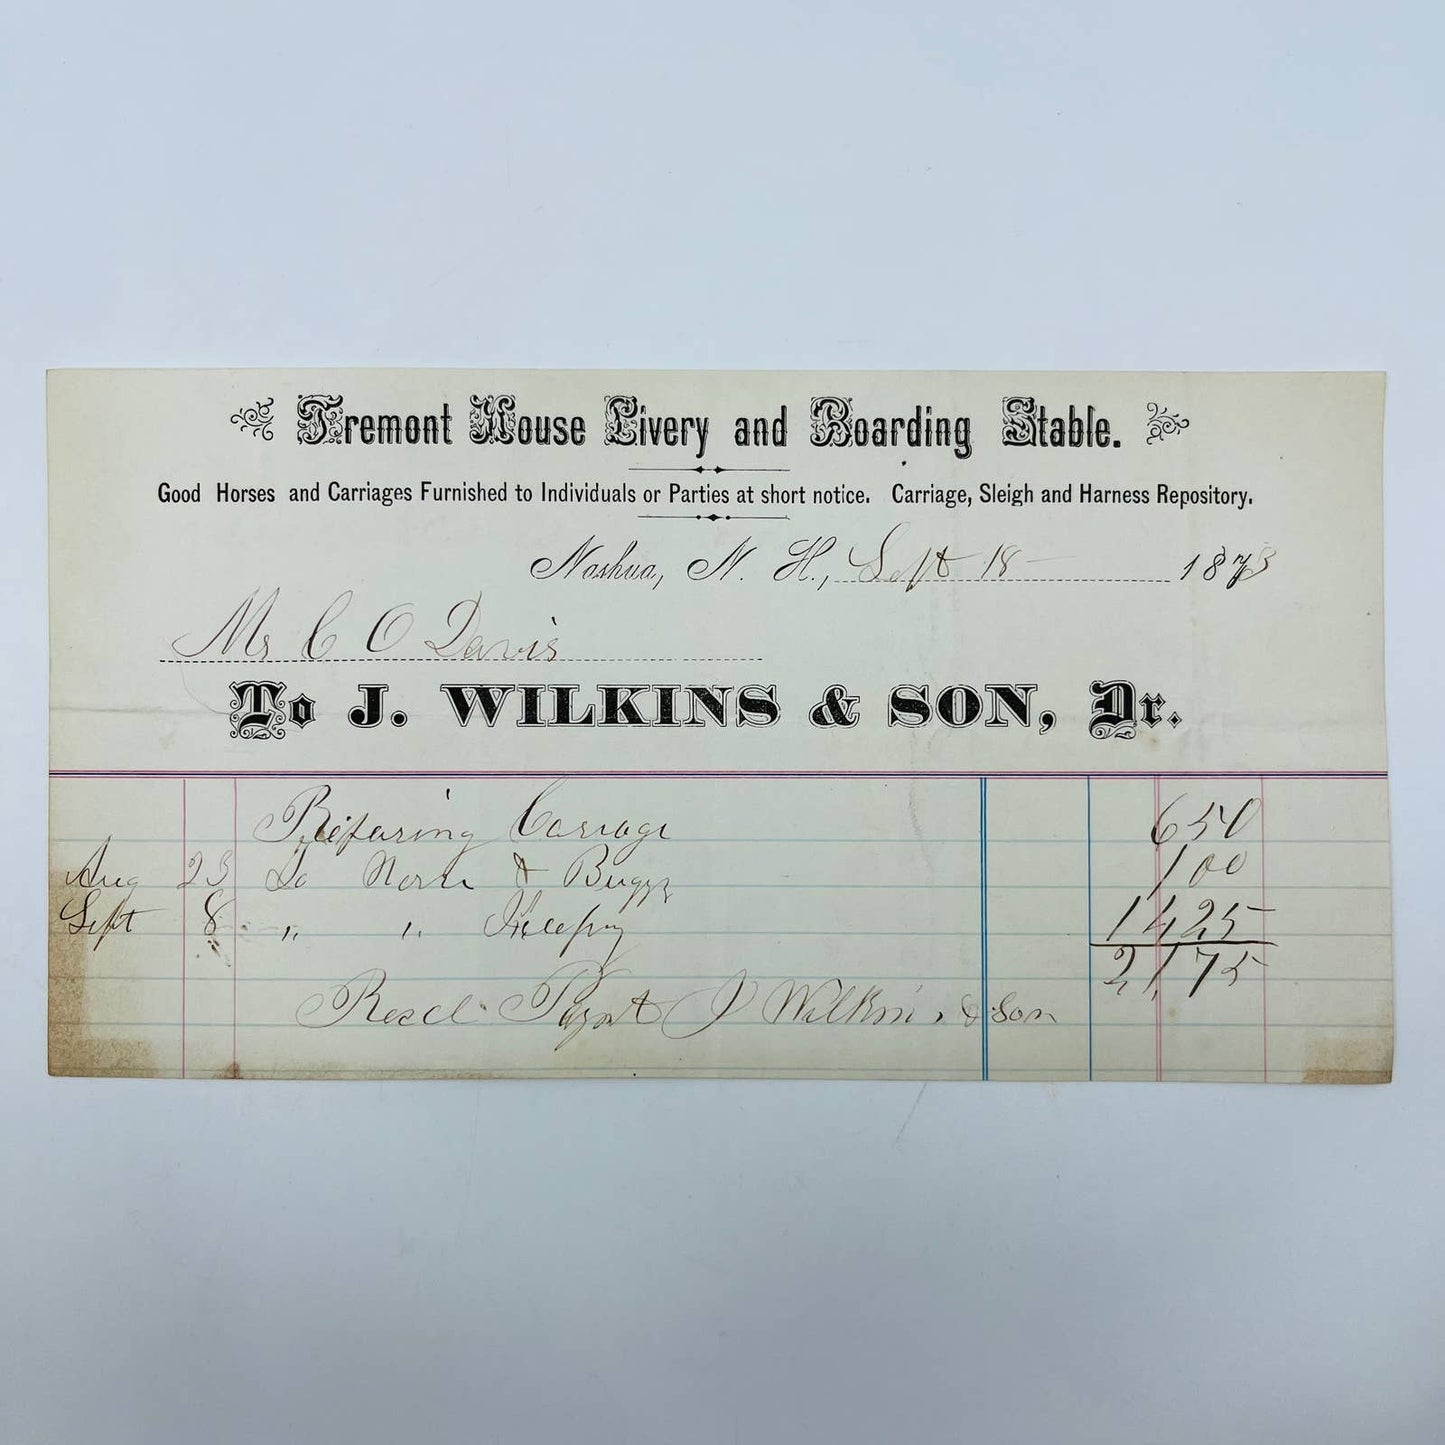 Tremont House Livery and Boarding Stable.
Good Horses and Carriages Furnished to Individuals or Parties at short notice. Carriage, Sleigh and Harness Repository.
Nashua, N. H., Sept 18 — 1873
Mr C O Davis
To J. WILKINS & SON, Dr.
Repairing Carriage 6 50
Aug 23 To Horse & Buggy 1 00
Sept 8 " " Keeping 14 25
21,75
Recd Paymt J Wilkins & Son